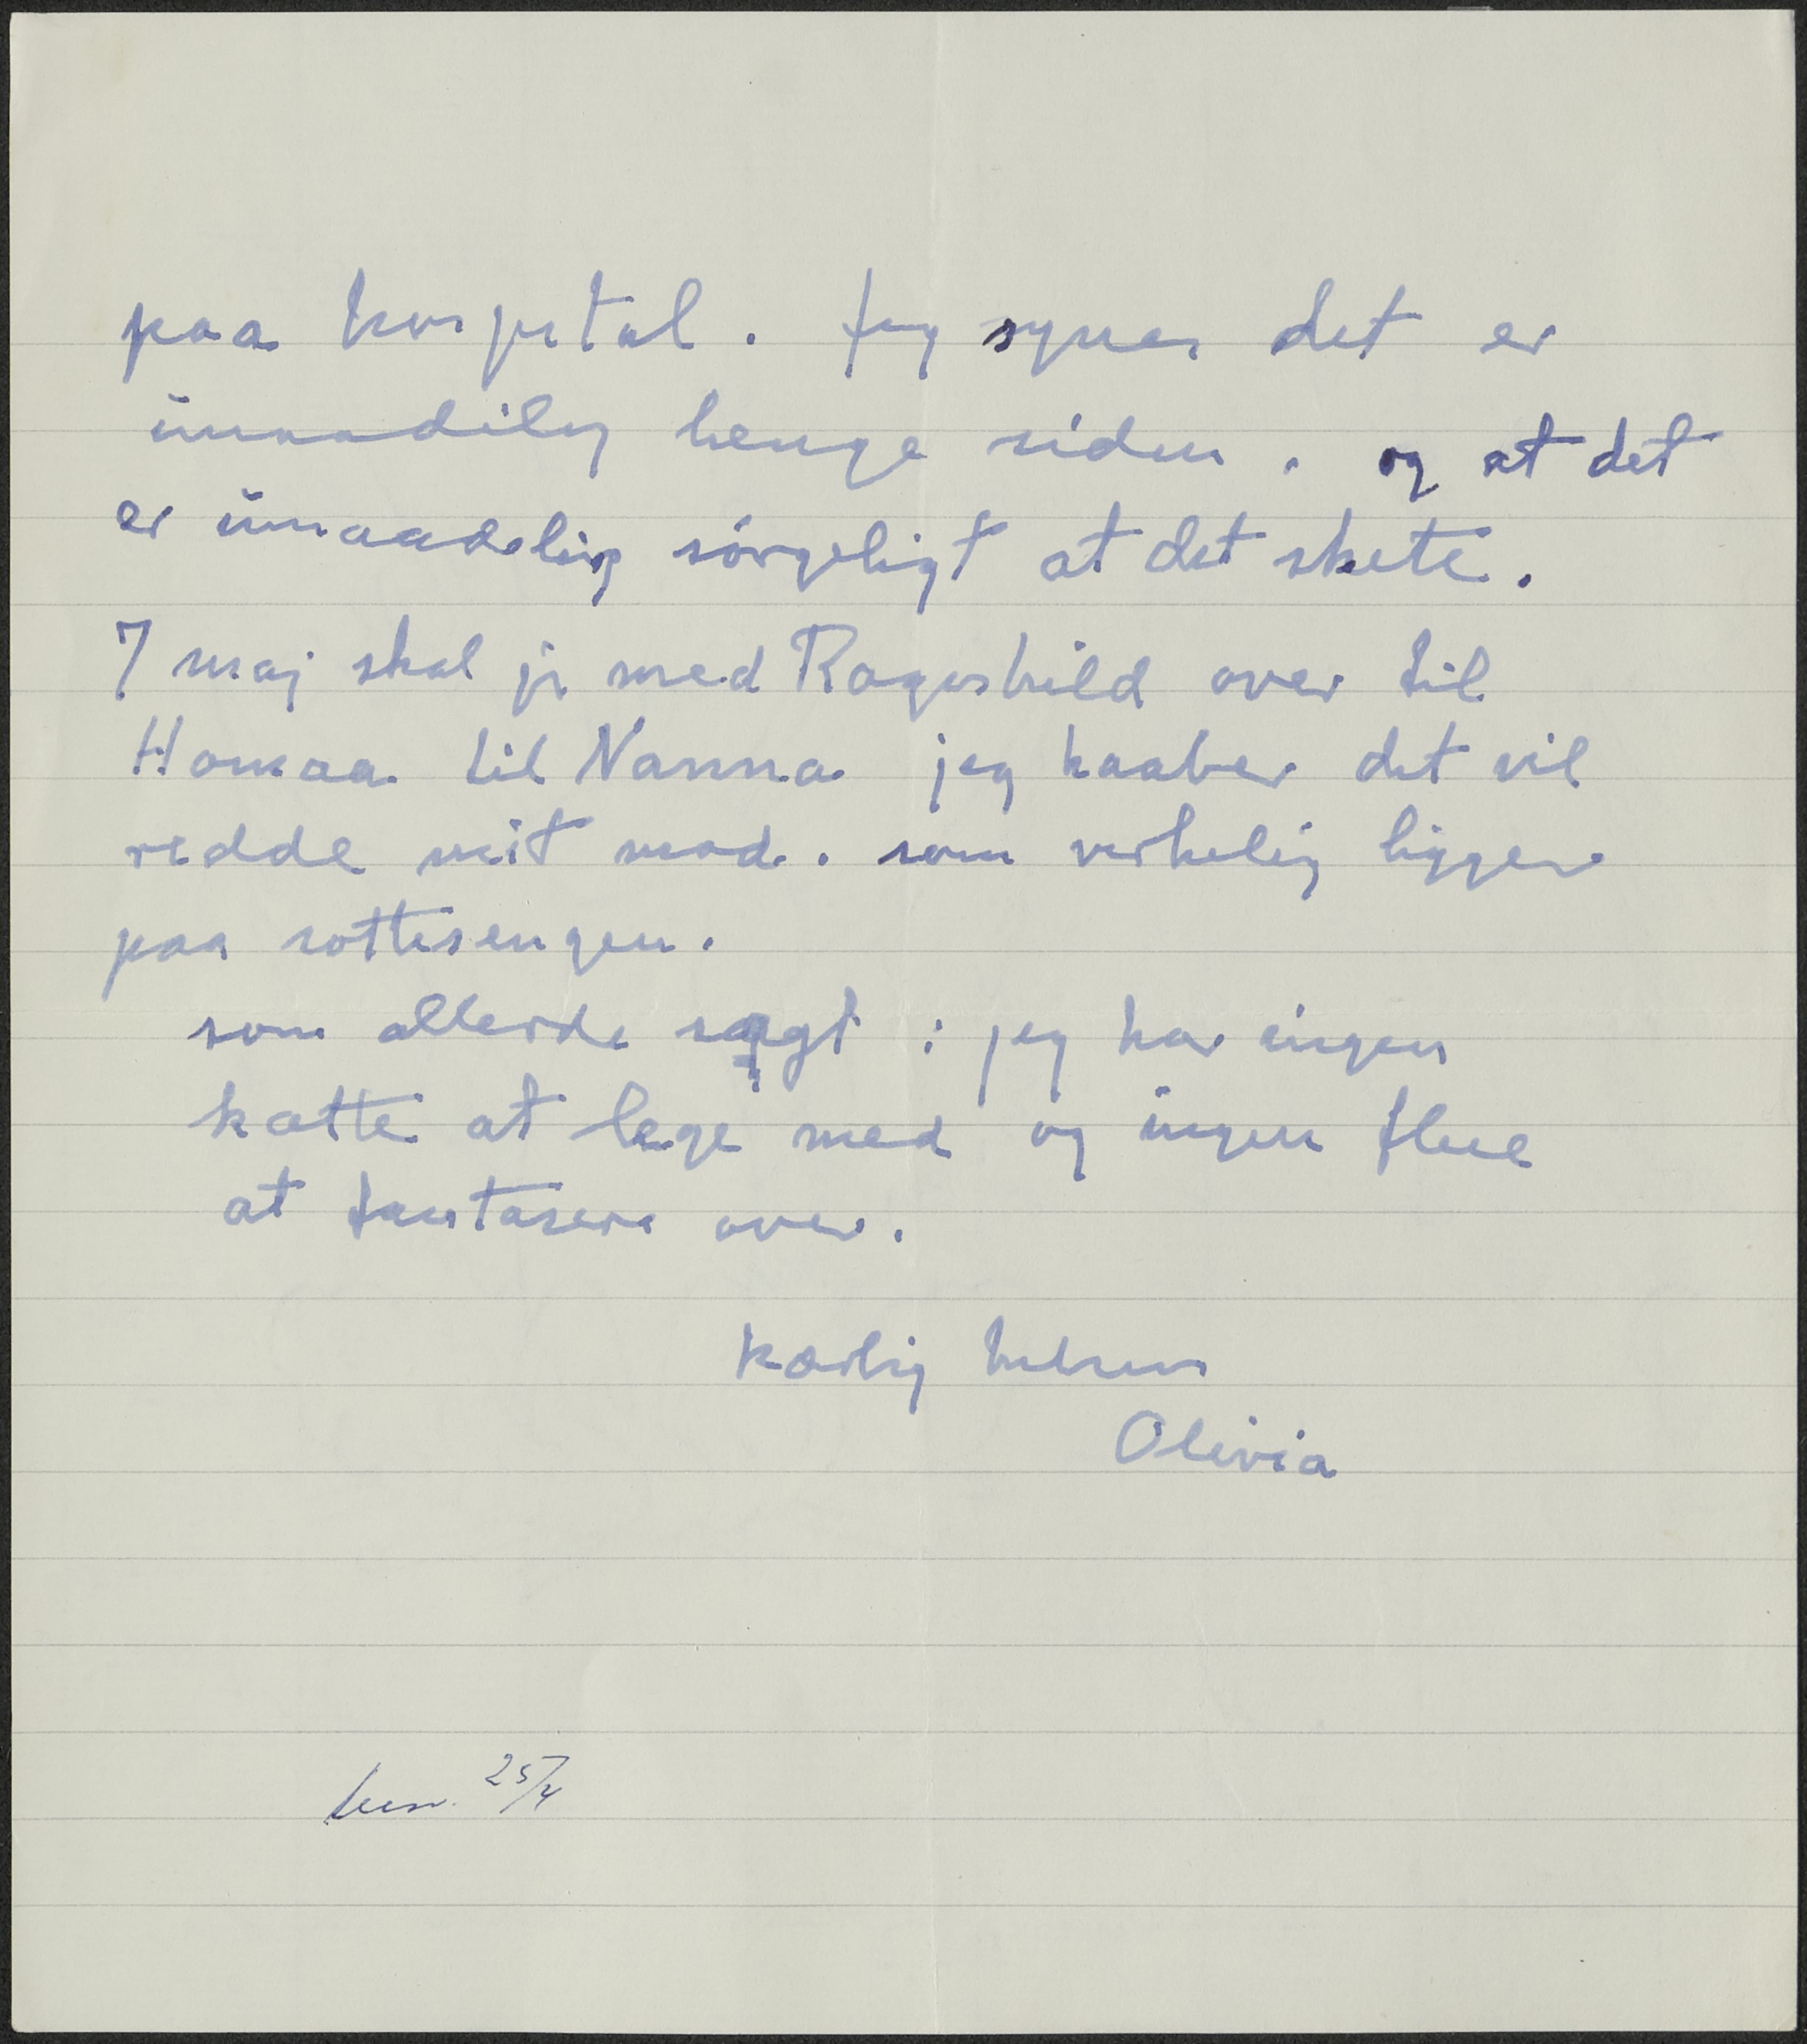 paa hospital. Jeg synes det er
umaadilig lenge siden. og at det
er umaadelig sörgeligt at det skete.
7 maj skal jeg med Ragnhild over til
til Nanna jeg haaber det vil
redde mit mod. som verkelig ligger
paa sottesengen.
som allerde sagt : jeg har ingen
katte at lege med og ingen flue
at fantasere over.
Kærlig hilsen
Olivia
25/4